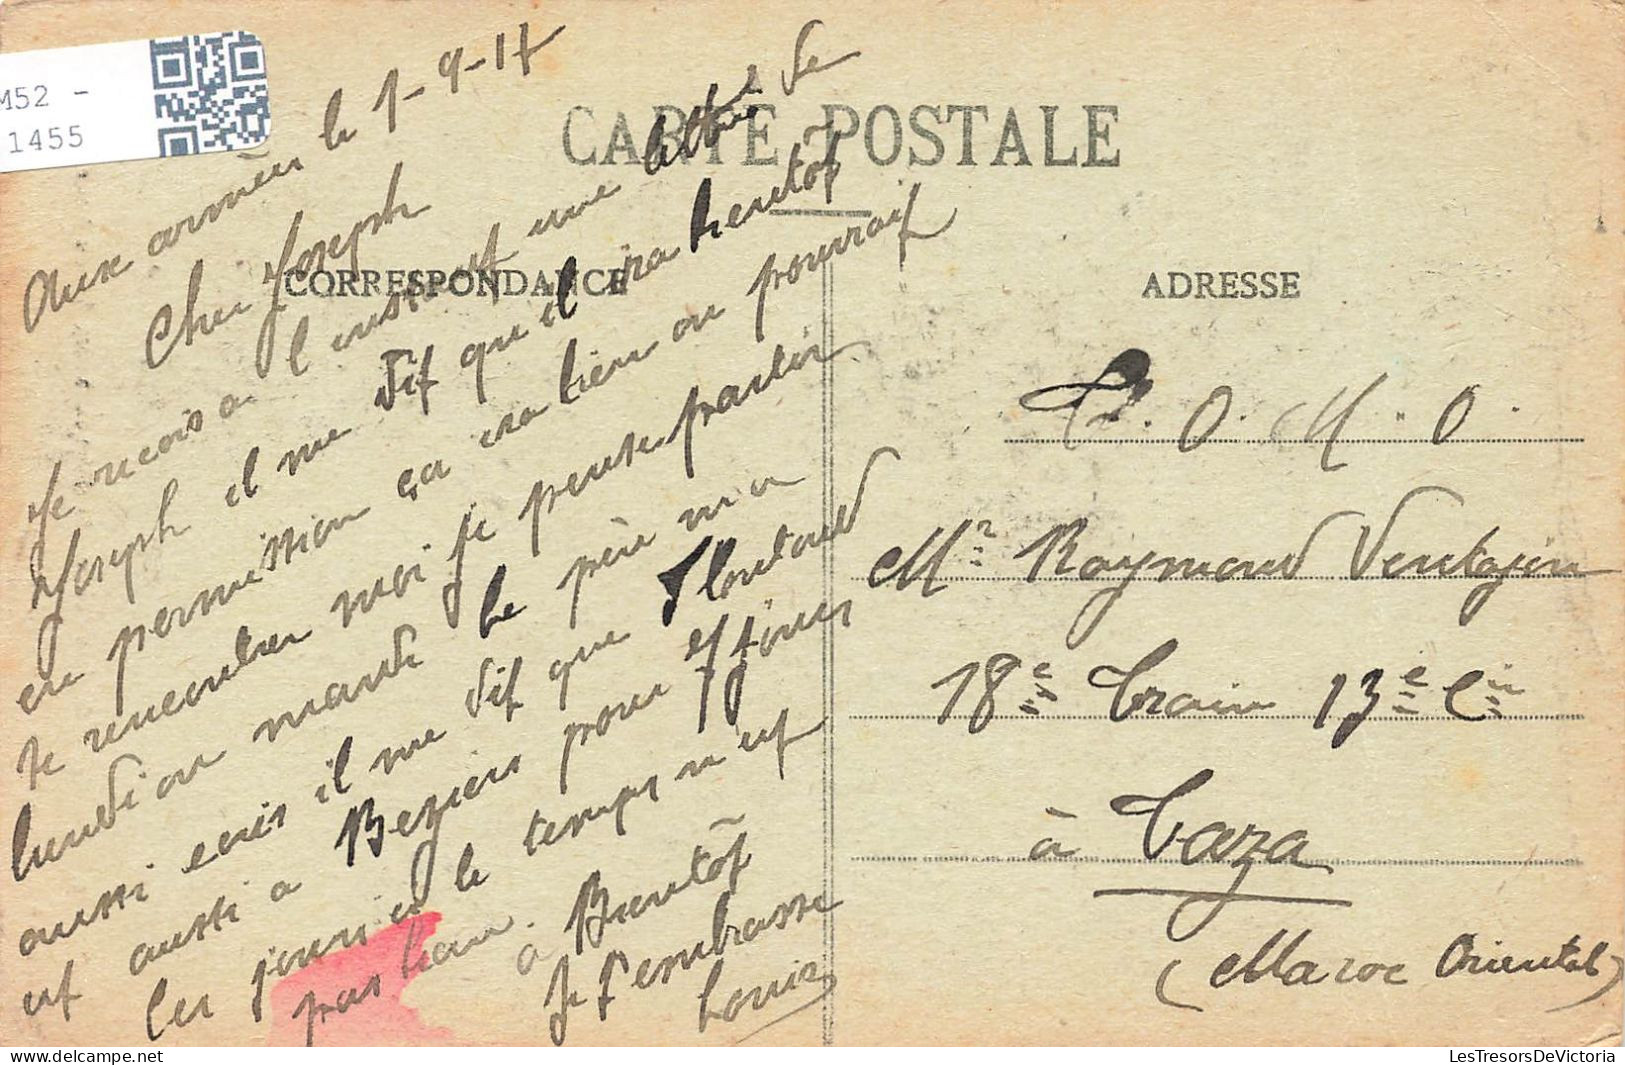 M52 -
1455
CARTE POSTALE
CORRESPONDANCE
ADRESSE
Aux armées le 1-9-17
Cher Joseph
Je reçois a l'instant une lettre de
Joseph il me dit que il ira bientôt
en permission ça ira bien on pourrait
te rencontrer moi je pense partir
lundi on marde le père m'a
aussi ecris il me dit que Floutard
est aussi a Beziers pour 7 jours
les jours ci le temps n'est
pas beau. a Bientôt
Je t'embrasse
Louis
C. O. M. O.
Mr Raymond Ventajou
18e Train 13e Cie
à Taza
(Maroc Oriental)
LesTresorsDeVictoria